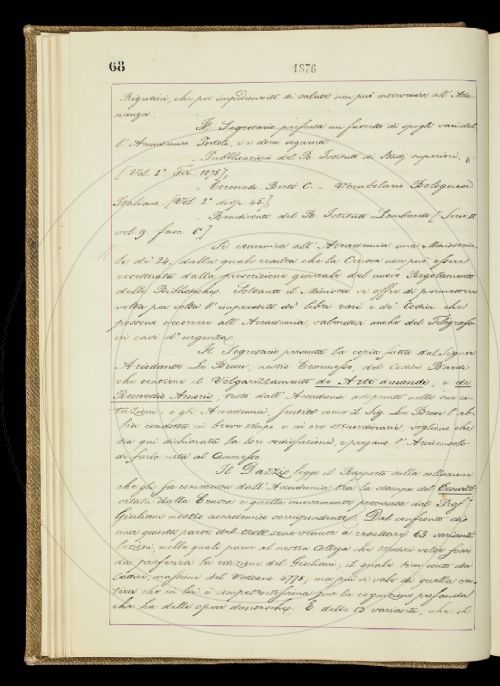 68
1876
Rigutini, che per impedimenti di salute non può intervenire all'Adu-
nanza.
Il Segretario presenta un fascetto di spogli vari del
l'Accademico Tortoli, e i doni seguenti
Pubblicazioni del R. Istituto di Studj superiori,
[Vol. 1° 1875],
Coronedi Berti C. - Vocabolario Bolognese
Italiano. [Vol 2° disp. 45],
Rendiconto del R. Istituto Lombardo [Serie II
vol. 9. fasc. 6°]
Si comunica all'Accademia una Ministeria-
le de' 24, dalla quale risulta che la Crusca non può essere
eccettuata dalla prescrizione generale del nuovo Regolamento
delle Biblioteche. Soltanto il Ministro si offre di permettere
volta per volta l'imprestito de' libri rari e de' Codici che
possono occorrere all'Accademia valendosi anche del Telegrafo
in casi d'urgenza.
Il Segretario presenta la copia fatta dal Signor
Ariodante Le Brun, nostro Commesso, del Codice Bardi
che contiene il Volgarizzamento de Arte amandi, e de
Remedio Amoris, testo dall'Accademia adoprato nelle sue ci-
tazioni; e gli Accademici, sentito come il Sig. Le Brun l'ab-
bia condotta in breve tempo e in ore straordinarie, vogliono che
sia qui dichiarata la loro sodisfazione, e pregano l'Arciconsolo
di farla nota al Commesso.
Il Dazzi legge il Rapporto sulla collazione
che gli fu commessa dall'Accademia tra la stampa del Convito
citata dalla Crusca e quella nuovamente procurata dal Prof.
Giuliani nostro accademico corrispondente. Dal confronto di
una quinta parte del testo sono venute a resultare 63 varianti
lezioni, nelle quali parve al nostro Collega che tredici volte fosse
da preferirsi la edizione del Giuliani, il quale tien conto dei
Codici, massime del Vaticano 4778, ma più si vale di quella cri-
tica che in lui è competentissima per la cognizione profonda
che ha delle opere dantesche. E delle 13 varianti, che il